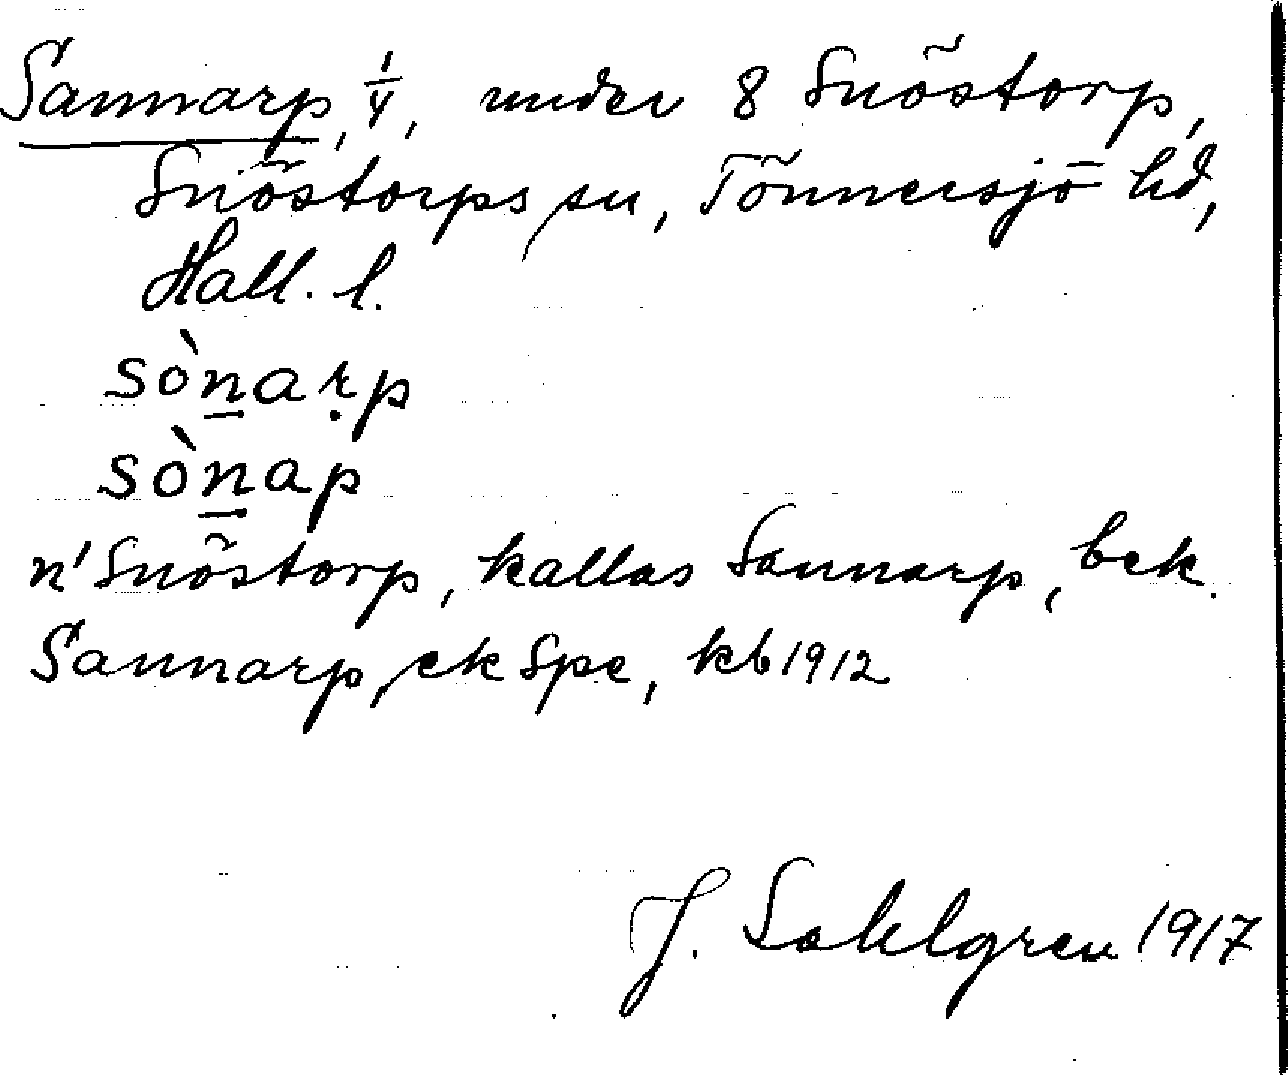 Sannarp, 1/4, under 8 Snöstorp,
Snöstorps sn, Tönnersjö hd,
Hall. l.
sòn̲aṛp
sòn̲ap
n' Snöstorp, kallas Sannarp, bek.
Sannarp, ek Spe, kb 1912
J. Sahlgren 1917